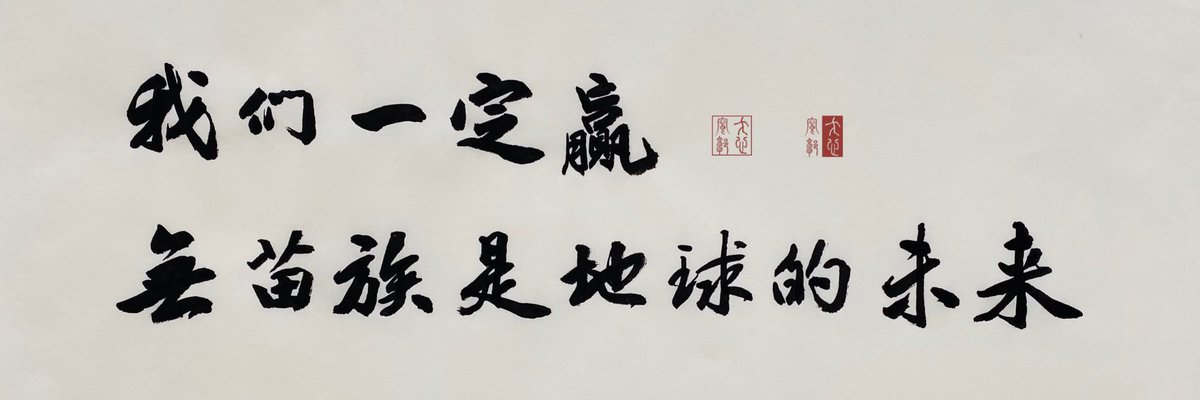 我们一定赢
無苗族是地球的未来